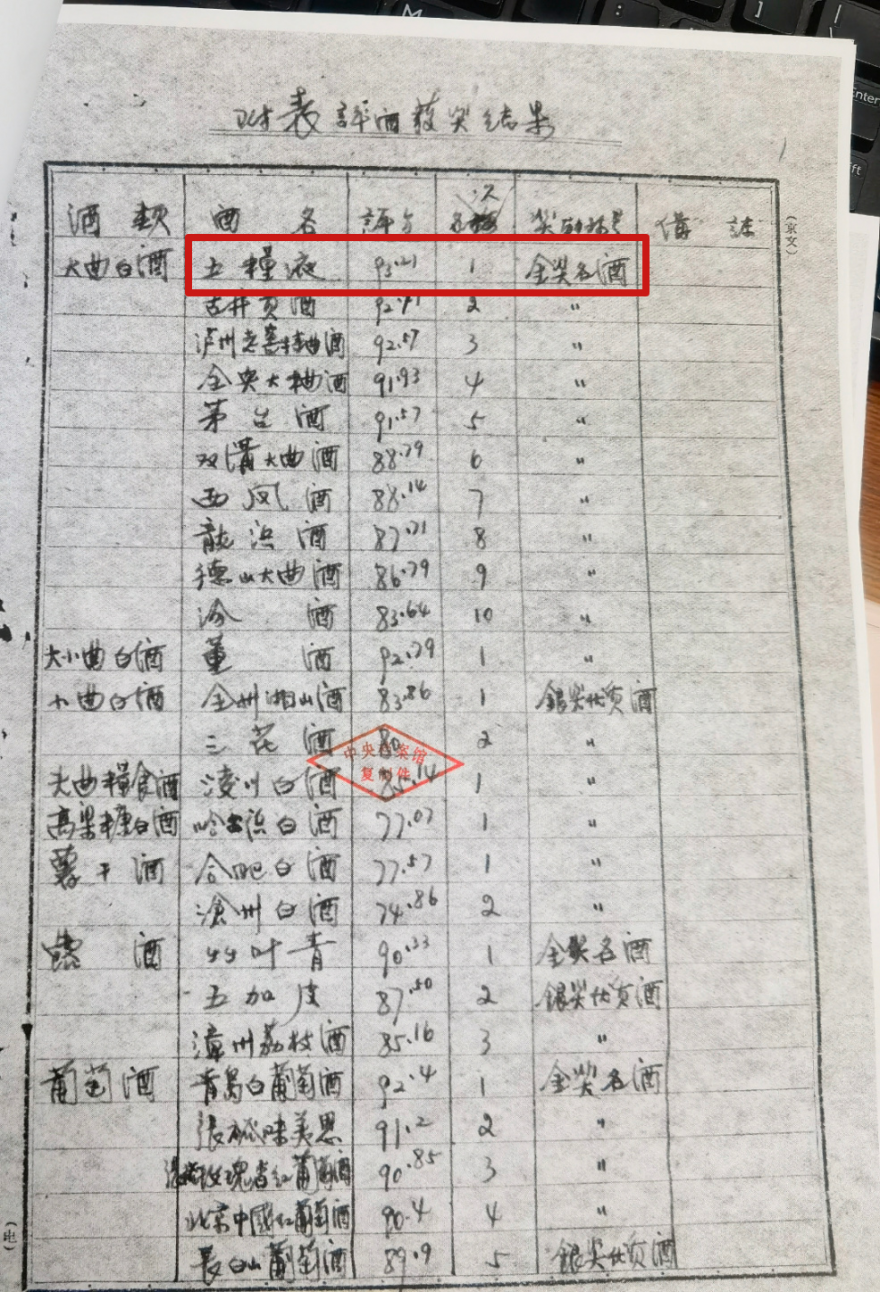 附表 评酒获奖结果
酒类 酒名 评分 名次 奖励称号 备註
(京文)
大曲白酒 五糧液 93.21 1 金奖名酒
古井贡酒 92.71 2 〃
泸州老窖特曲酒 92.57 3 〃
全兴大曲酒 91.93 4 〃
茅台酒 91.57 5 〃
双溝大曲酒 88.79 6 〃
西凤酒 88.14 7 〃
龍浜酒 87.71 8 〃
德山大曲酒 86.79 9 〃
汾酒 83.64 10 〃
大小曲白酒 董酒 92.79 1 〃
小曲白酒 全州湘山酒 83.86 1 銀奖优质酒
三花酒 80 2 〃
中央档案馆
复制件
大曲糧食酒 凌川白酒 85.14 1 〃
高梁糠白酒 哈尔浜白酒 77.07 1 〃
薯干酒 合肥白酒 77.57 1 〃
滄州白酒 74.86 2 〃
露酒 竹叶青 90.33 1 金奖名酒
五加皮 87.50 2 銀奖优质酒
漳州荔枝酒 85.16 3 〃
葡萄酒 青岛白葡萄酒 92.4 1 金奖名酒
張裕味美思 91.2 2 〃
張裕玫瑰香红葡萄酒 90.85 3 〃
北京中國红葡萄酒 90.4 4 〃
長白山葡萄酒 89.9 5 銀奖优质酒
(电)
Enter